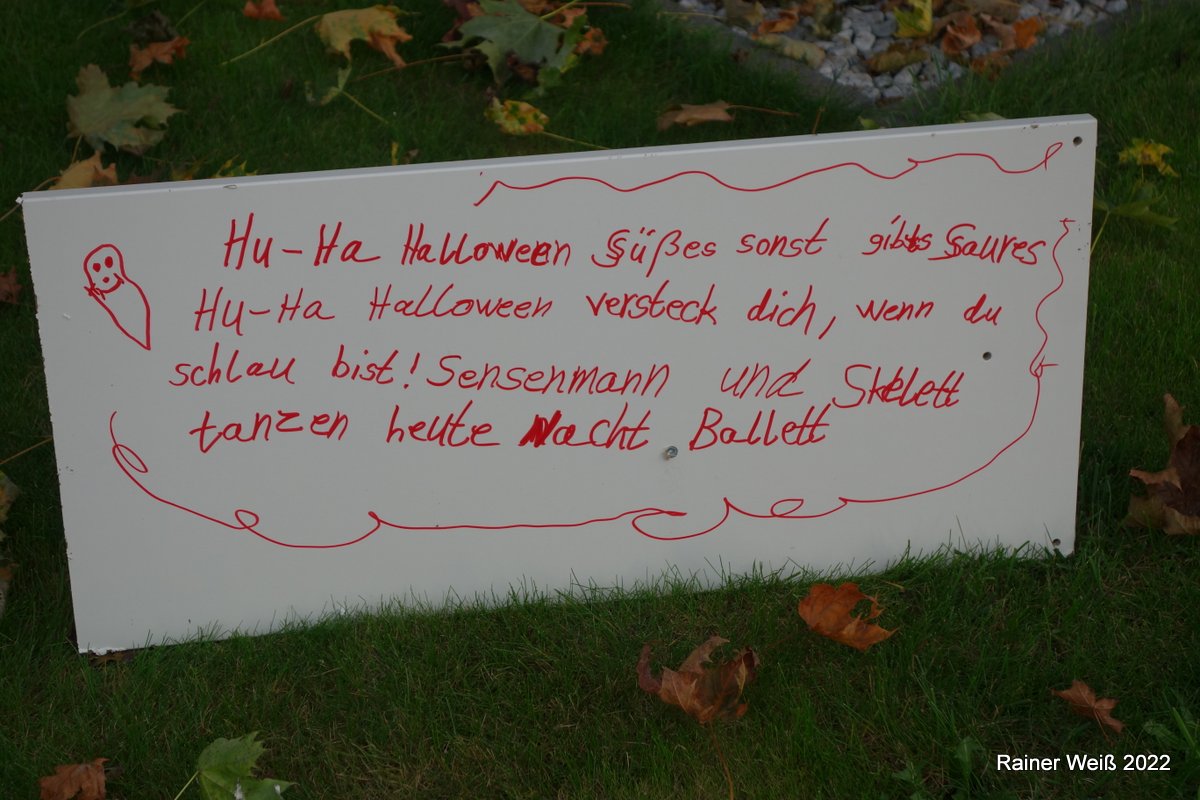 Hu-Ha Halloween Süßes sonst gibts Saures
Hu-Ha Halloween versteck dich, wenn du
schlau bist! Sensenmann und Skelett
tanzen heute Nacht Ballett
Rainer Weiß 2022